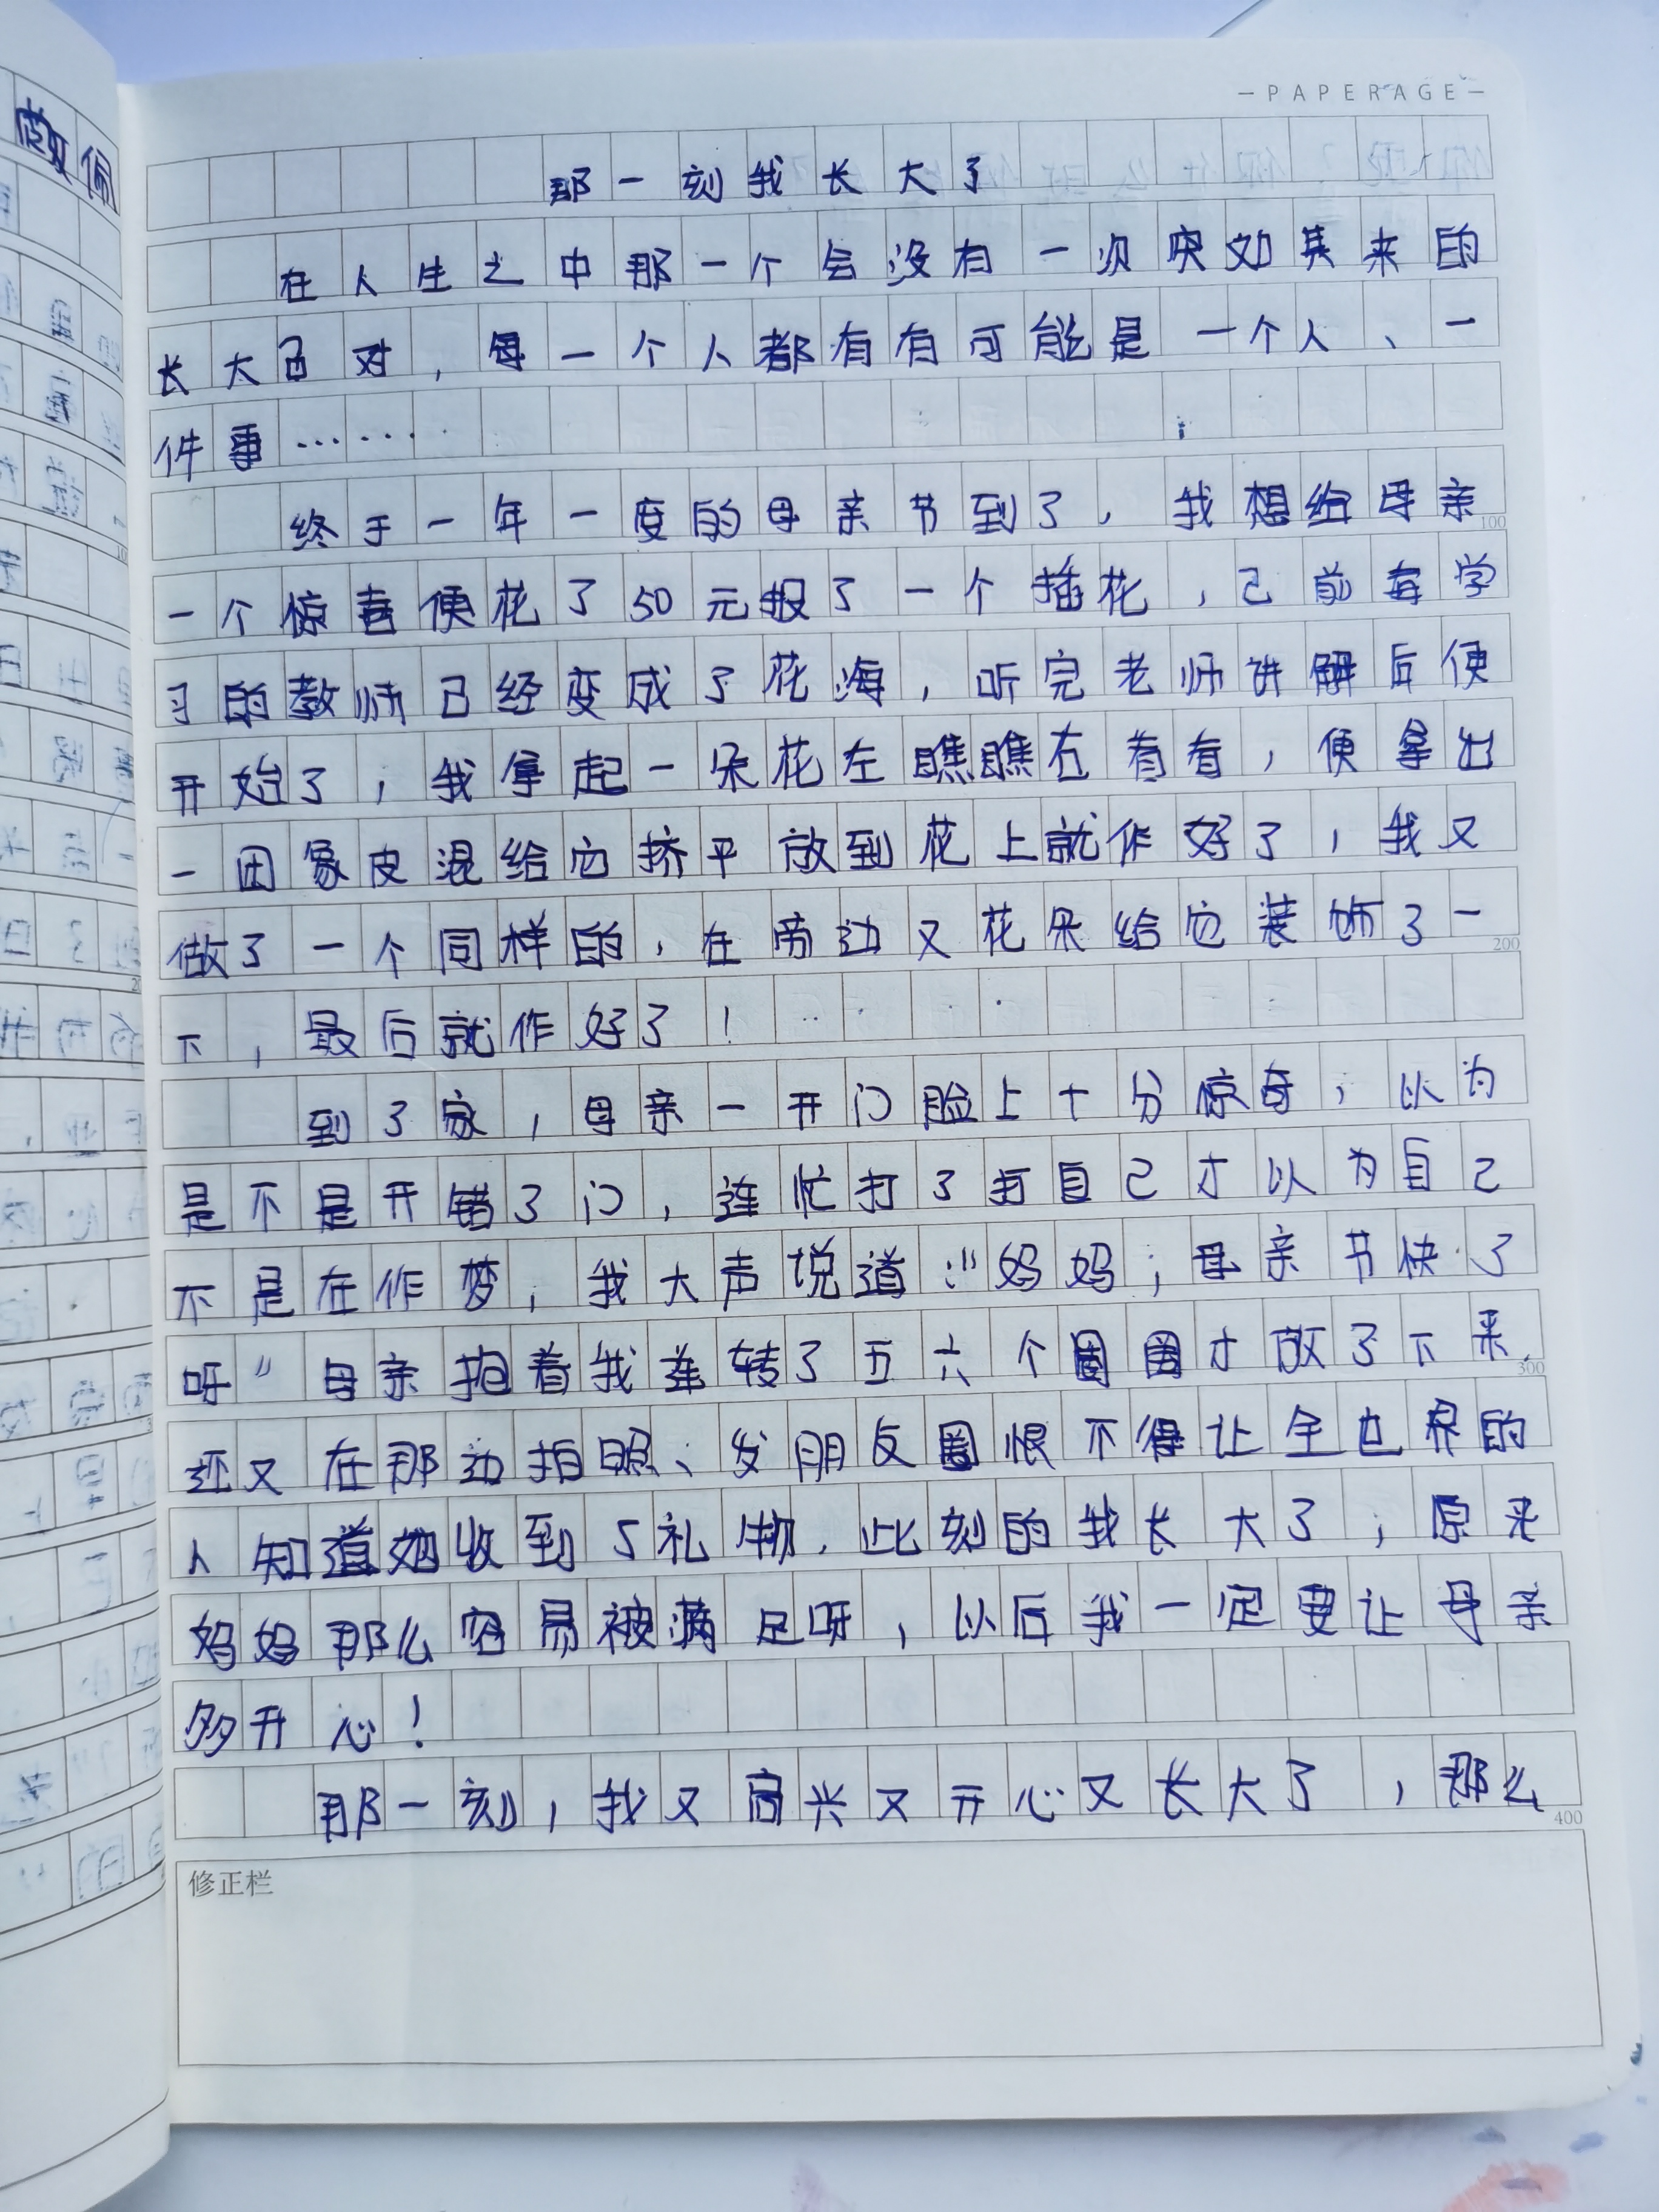 — PAPERAGE —
那一刻我长大了
在人生之中那一个会没有一次突如其来的
长大己对，每一个人都有有可能是一个人、一
件事……
终于一年一度的母亲节到了，我想给母亲
100
一个惊喜便花了50元报了一个插花，己前每学
习的教师已经变成了花海，听完老师讲解后便
开始了，我拿起一朵花左瞧瞧右看看，便拿出
一团象皮混给它挤平放到花上就作好了，我又
做了一个同样的，在旁边又花朵给它装饰了一
200
下，最后就作好了！
到了家，母亲一开门脸上十分惊奇，以为
是不是开错了门，连忙打了打自己才以为自己
不是在作梦，我大声说道：“妈妈；母亲节快了
呀”母亲抱着我连转了五六个圈圈才放了下来，
300
还又在那边拍照、发朋友圈恨不得让全也界的
人知道她收到了礼物．此刻的我长大了，原来
妈妈那么容易被满足呀，以后我一定要让母亲
多开心！
那一刻，我又高兴又开心又长大了，那么
400
修正栏